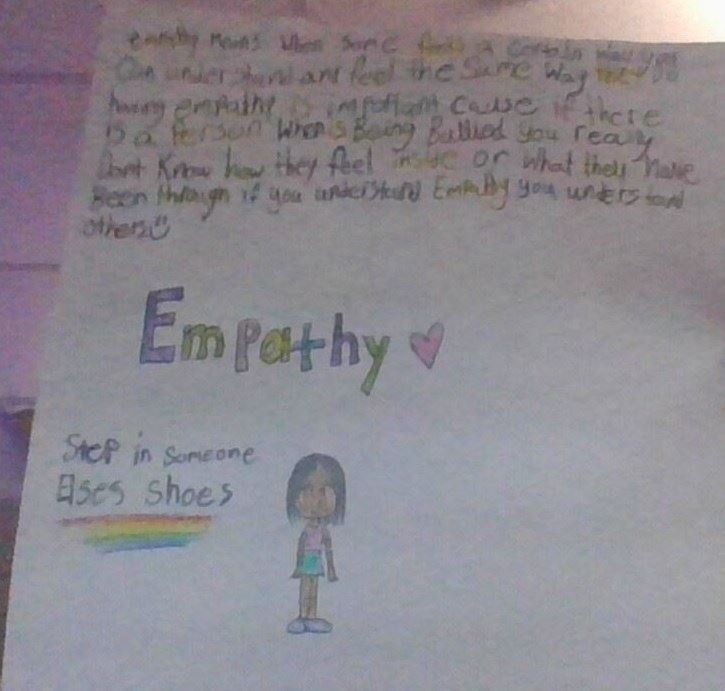 empathy means when some feels a certain way you
Can understand and feel the Same Way
having empathy is important cause if there
is a Person When is Being Bullied you really
Dont Know how they feel inside or what they have
Been through if you understand Empathy you understand
others
Empathy
Step in Someone
Elses Shoes